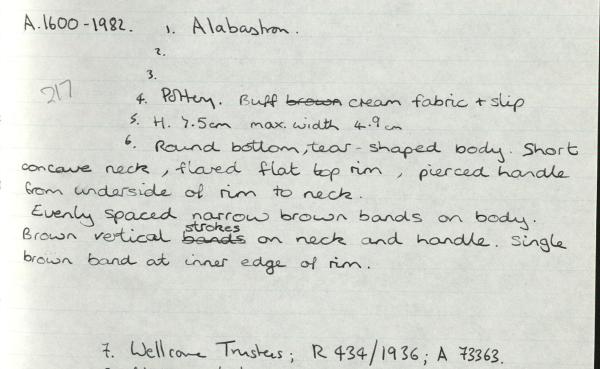 A.1600-1982. 1. Alabastron.
2.
3.
217
4. Pottery. Buff brown cream fabric + slip
5. H. 7.5cm max. width 4.9cm
6. Round bottom, tear-shaped body. Short
concave neck, flared flat top rim, pierced handle
from underside of rim to neck.
Evenly spaced narrow brown bands on body.
Brown vertical bands strokes on neck and handle. Single
brown band at inner edge of rim.
7. Wellcome Trustees; R 434/1936; A 73363.